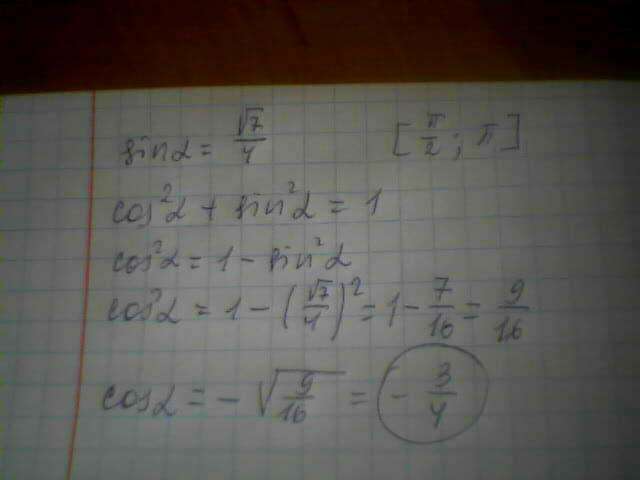 sin α = √7/4 [π/2; π]
cos²α + sin²α = 1
cos²α = 1 − sin²α
cos²α = 1 − (√7/4)² = 1 − 7/16 = 9/16
cos α = − √(9/16) = − 3/4